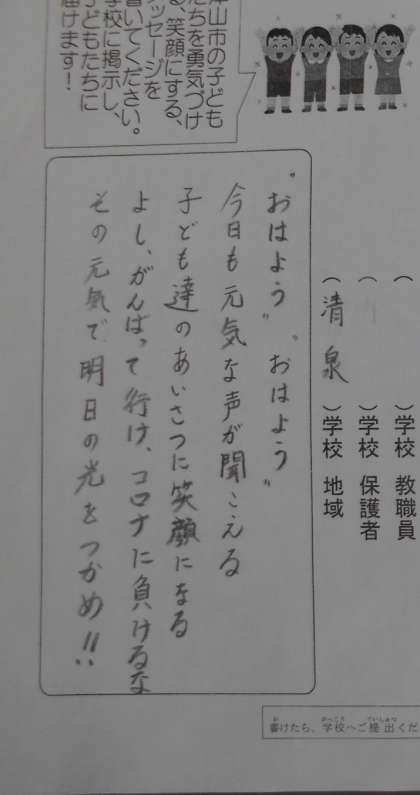 山市の子ども
たちを勇気づけ
る、笑顔にする、
メッセージを
書いてください。
学校に掲示し、
子どもたちに
届けます！
（　　　）学校 教職員
（　　　）学校 保護者
（清泉）学校 地域
“おはよう”“おはよう”
今日も元気な声が聞こえる
子ども達のあいさつに笑顔になる
よし、がんばって行け、コロナに負けるな
その元気で明日の光をつかめ!!
書けたら、学校へご提出くだ